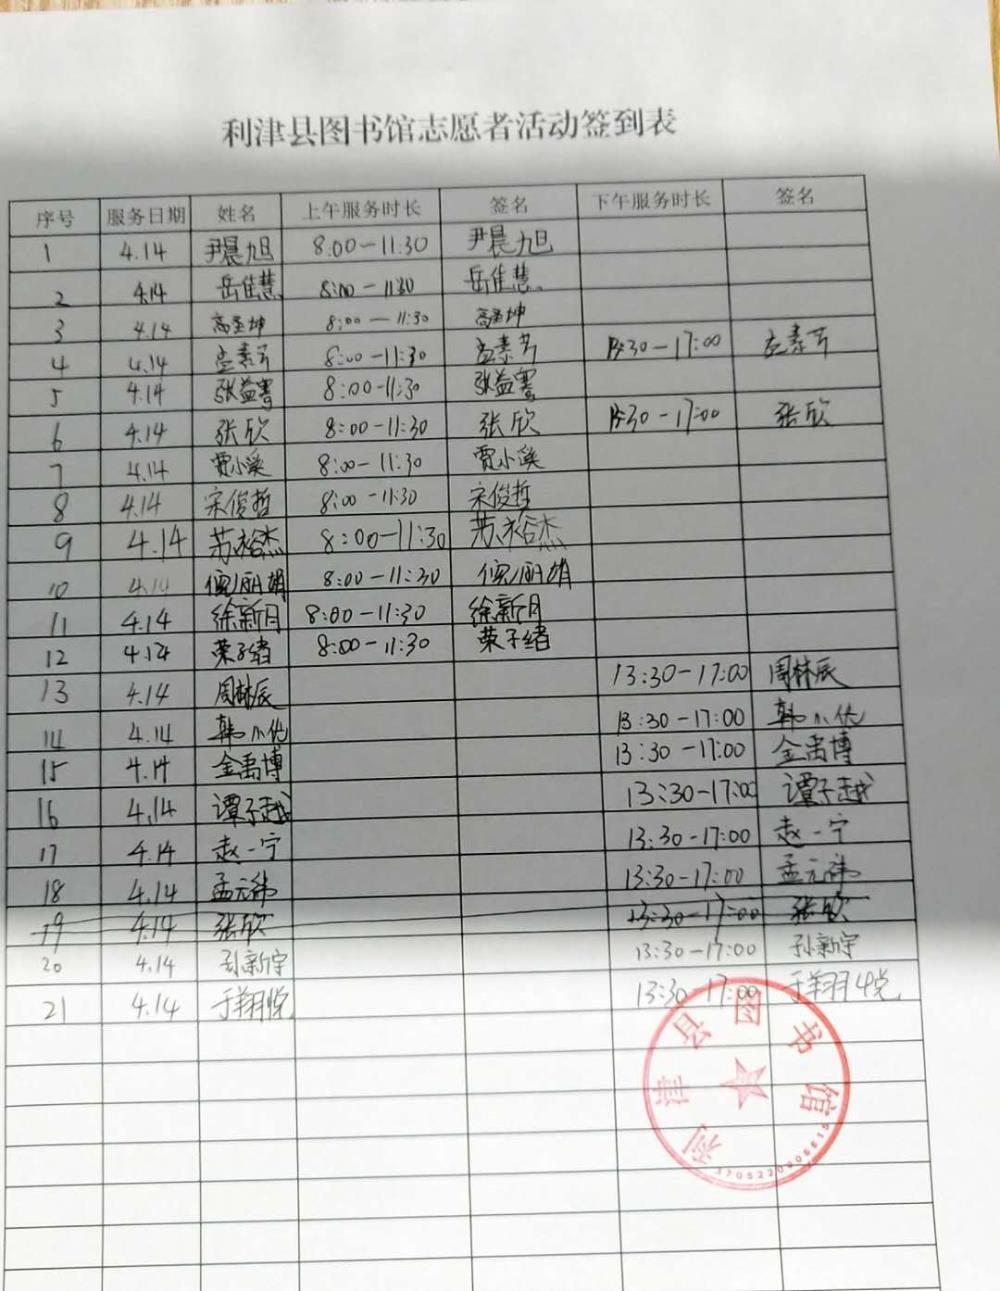 利津县图书馆志愿者活动签到表
序号 服务日期 姓名 上午服务时长 签名 下午服务时长 签名
1 4.14 尹晨旭 8:00-11:30 尹晨旭
2 4.14 岳佳慧 8:00-11:30 岳佳慧
3 4.14 高圣坤 8:00-11:30 高圣坤
4 4.14 孟素芳 8:00-11:30 孟素芳 13:30-17:00 孟素芳
5 4.14 张益 8:00-11:30 张益
6 4.14 张欣 8:00-11:30 张欣 13:30-17:00 张欣
7 4.14 贾小溪 8:00-11:30 贾小溪
8 4.14 宋俊哲 8:00-11:30 宋俊哲
9 4.14 苏裕杰 8:00-11:30 苏裕杰
10 4.14 倪丽娟 8:00-11:30 倪丽娟
11 4.14 徐新月 8:00-11:30 徐新月
12 4.14 荣子绪 8:00-11:30 荣子绪
13 4.14 周林辰 13:30-17:00 周林辰
14 4.14 韩小优 13:30-17:00 韩小优
15 4.14 金禹博 13:30-17:00 金禹博
16 4.14 谭子越 13:30-17:00 谭子越
17 4.14 赵一宁 13:30-17:00 赵一宁
18 4.14 孟元祎 13:30-17:00 孟元祎
19 4.14 张欣 13:30-17:00 张欣
20 4.14 孙新宇 13:30-17:00 孙新宇
21 4.14 于翔悦 13:30-17:00 于翔悦
利津县图书馆